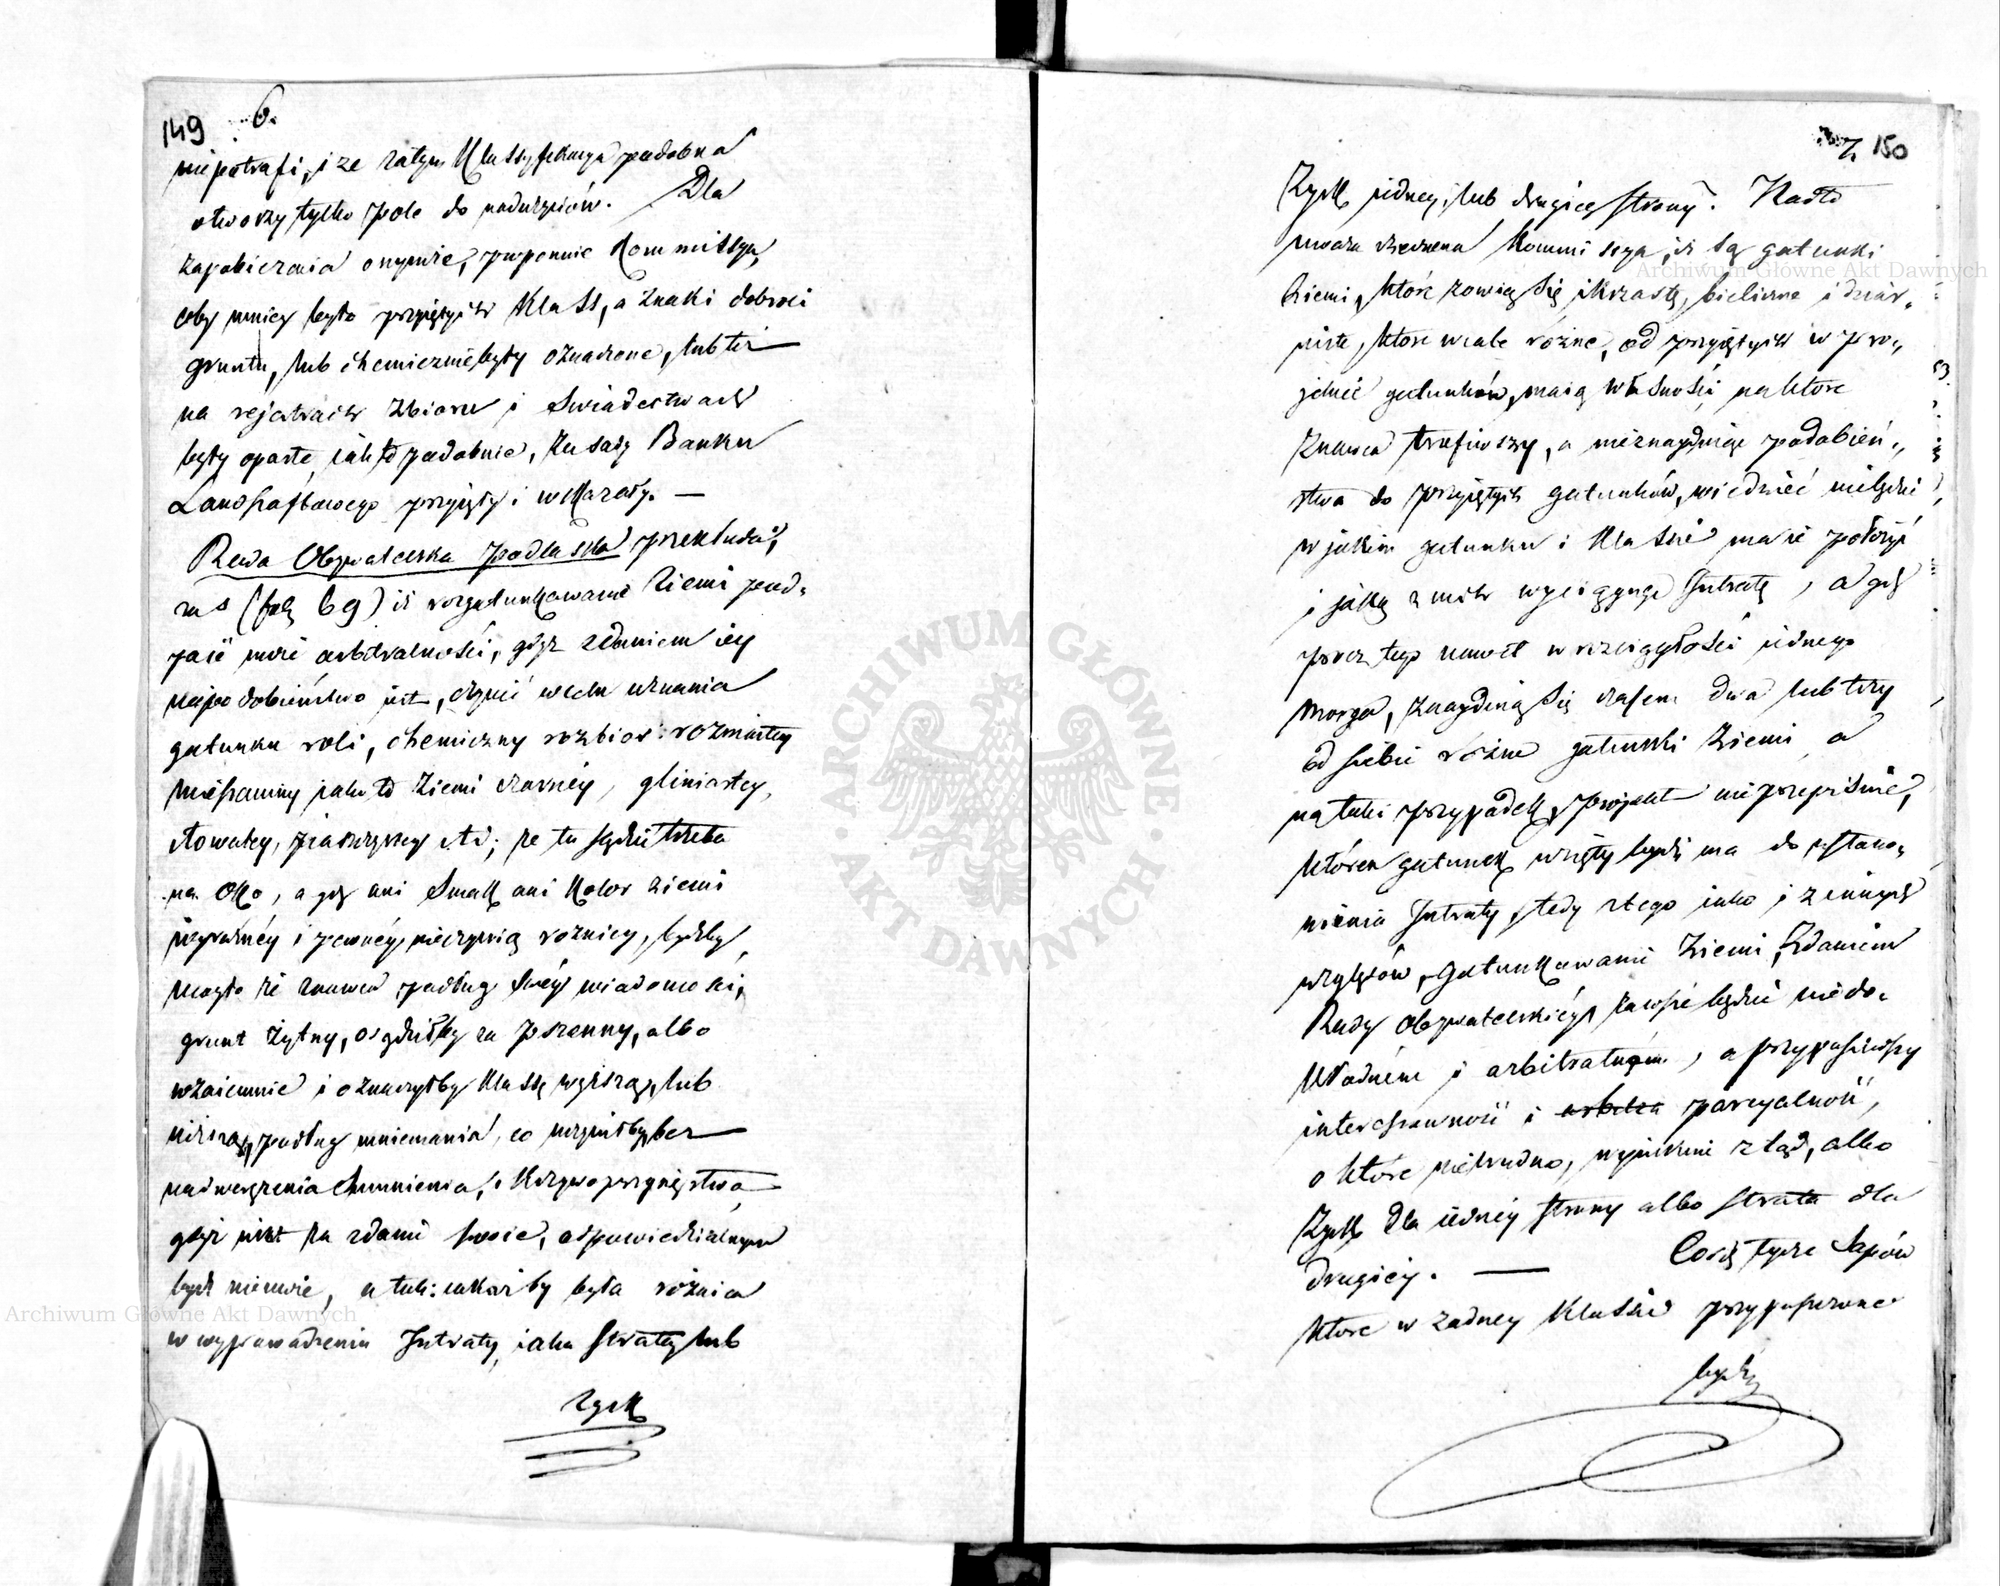 149 6.
niepotrafi, i ze zatym Klassyfikacya podobna
otworzy tylko pole do nadużyciów. Dla
zapobieżenia onymże, proponuie Kommissya,
aby mniey było przyiętych Klass, a znaki dobroci
gruntu, lub chemicznie były oznaczone, lub też
na rejestrach zbioru i Świadectwach
były oparte, iak to podobnie, zasady Banku
Landszaftowego przyięły i wskazały. —
Rada Obywatelska Podlaska przekłada,
nas (fol: 69) iż rozgatunkowanie Ziemi pod,
paść może arbitralności, gdyż zdaniem iey
niepodobieństwo jest, czynić wcelu uznania
gatunku roli, chemiczny rozbior rozmaitey
mieszaniny iako to Ziemi czarnéy, gliniastey,
iłowatey, piaszczystey etc; że tu sądzić trzeba
na oko, a gdy ani Smak ani Kolor ziemi
wyraźnéy i pewnéy nieczynią roznicy, byłby
mogło że znawca podług swéy wiadomości,
grunt żytny, osądziłby za pszenny, albo
wzaiemnie i oznaczyłby Klassę wyższą, lub
niższą, podług mniemania, co uczyniłby bez
nadwerężenia Sumnienia, i Krzywoprzysięstwa
gdyż nikt za zdanie swoie, odpowiedzialnym
bydź niemoże, a tak: wszakżeby była różnica
w wyprowadzeniu Intraty, iako Stratę lub
Zysk
7. 150
Zysk jedney, lub drugiéy strony. Nadto
uważa rzeczona Kommissya, iż są gatunki
Ziemi, które zowią się ikrzaste, bielizne i dziar,
niste, które wcale różne, od przyiętych w pro,
jekcie gatunków, maią własności, na które
Znawca trafiwszy, a nieznayduiąc podobień,
stwa do przyiętych gatunków, wiedzieć niebędzie
w jakim gatunku i Klassie ma ie położyć
i jaką z nich wyciągnąć Intratę, a gdy
procz tego nawet w rozciągłości jednego
morga, znayduią się czasem dwa lub trzy
od siebie różne gatunki Ziemi, a
na taki przypadek, projekt nieprzepisuie,
któren gatunek wzięty bydź ma do ustano,
wienia Intraty, tedy z tego iako i z innych
względów, gatunkowanie Ziemi, zdaniem
Rady Obywatelskiéy, zawsze będzie niedo,
kładném i arbitralném, a przypuściwszy
interessowność i arbitra parcyalność,
o które nietrudno, wyniknie ztąd, albo
Zysk dla iedney strony albo strata dla
drugiéy. — Co się tycze Sapów
które w żadney Klassie przypuszczone
bydź
Archiwum Główne Akt Dawnych
Archiwum Główne Akt Dawnych
ARCHIWUM GŁÓWNE AKT DAWNYCH